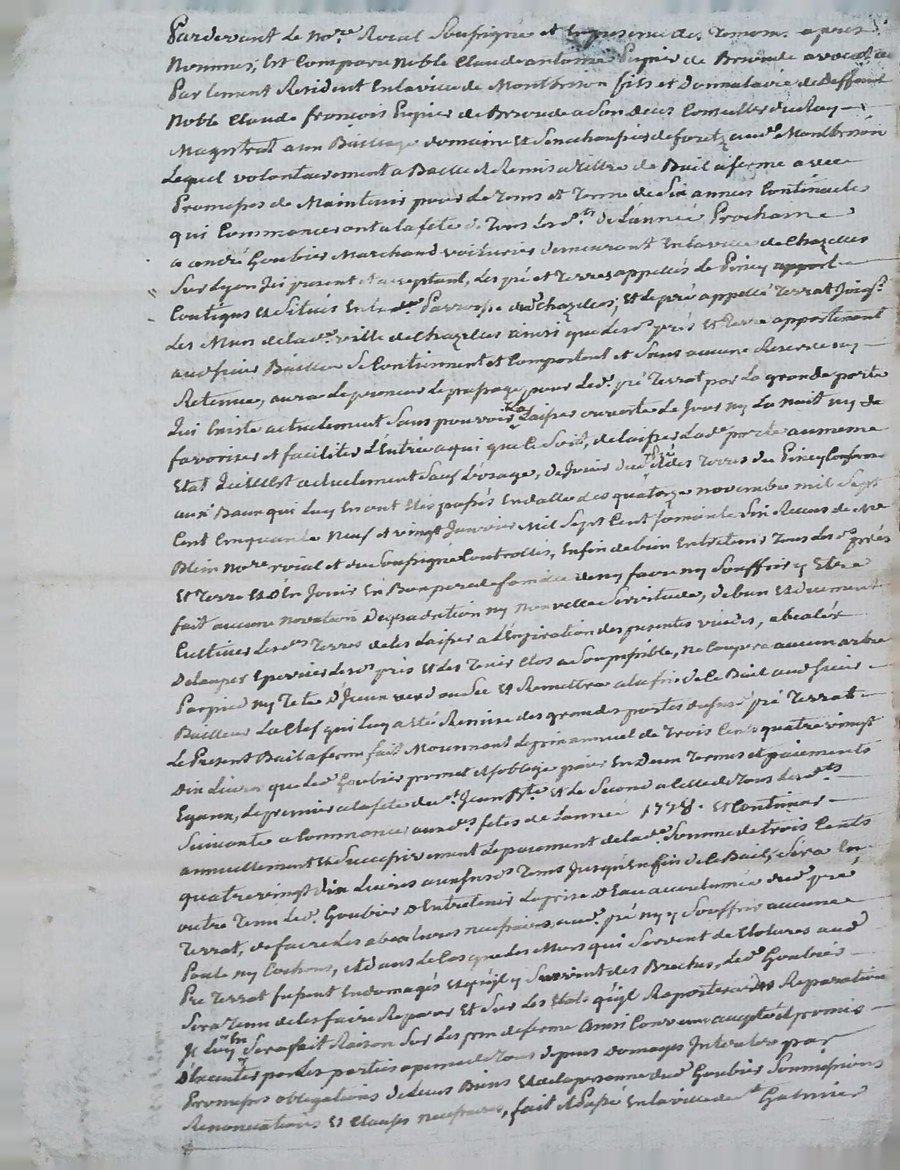 Pardevant le no.re Roial Soussigne et en presence des Temoins apres
Nommes, Est Comparu Noble Claude antoine Pupier de Brioude avocat en
Parlement Resident En la ville de Montbrison fils et Donnataire de Deffunt
Noble Claude francois Pupier de Brioude a Son deces Conseiller du Roy
Magistrat aux Bailliage domaine et Senechaussee de forets aud. Montbrison
Lequel volontairement a Baillé et Remis a titre de Bail a ferme avec
Promesses de Maintenir pour le Tems et Terme de Six années Continuelles
qui Commenceront a la fete de Tous les S.ts de L'année Prochaine
a andré Goubier Marchand voiturier demeurant En la ville de Chazelles
Sur Lyon Ici present et acceptant, Les pré et terres appellés de Piney
Contigus et Situés En la Parroisse dud. Chazelles, et le pré appellé Terrat Joig.t
Les Murs de lad. ville de Chazelles ainsi que les d. prés et terre appartenant
aud sieur Bailleur Se Contiennent et Comportent et Sans aucune Reserve ny
Retenue, aura le preneur le passage pour led. pré Terrat par la grande porte
qui Existe actuellement Sans pouvoir La Laisser ouverte le Jour ny La nuit ny de
favoriser et faciliter L'Entrée a qui que Ce Soit, de laisser lad. porte au meme
Etat qu'elle Est actuellement Sauf L'usage, de Jouir des Terres du Piney Conforme
aux Baux qui Luy En ont Etés passés En datte des quatorze novembre mil Sept
Cent Cinquante Neuf et vingt Janvier Mil Sept Cent Soixante Six Recus de M.e
Blein No.re roial et du Soussigne Controllés, Enfin de bien Entretenir Tous les d. prés
Et Terre Et d'En Jouir En Bon pere de famille de ny faire ny Souffrir y Etre
fait aucune novation Degradation ny nouvelle Servitude, de bien et duement
Cultiver les d. Terres de les Laisser a L'Expiration des presentes
prés et les Tenir Clos a Son possible, ne Coupera aucun arbre
Par pied ny Tete d'Iceux verd ou Sec Et Remettra a la fin de Ce Bail aud Sieur
Bailleur La Clef qui Luy a Eté Remise des grandes portes dud. pré Terrat
Le Present Bail a ferme fait Moyennant le prix annuel de Trois Cents quatre vingt
Dix Livres que led. Goubier promet et s'oblige paier En Deux Termes et paiements
Egaux, le premier a la fete de St. Jean Bte. et le Second a Celle de Tous les S.ts
Suivante a Commencer aux d. fetes de L'année 1778. et Continuer
annuellement et Successivement le paiement de lad. Somme de trois Cents
quatre vingt dix Livres aux susd. Tems Jusqu'En fin de Ce Bail; Sera En
outre Tenu led. Goubier d'Entretenir La prise d'Eau accoutumée dud. pré
Terrat, de faire Les necessaires aud. pré ny y Souffrir aucune
Poule ny Cochons, Et dans le Cas que les Murs qui Servent de Clotures aud
Pré Terrat fussent Endomagés et qu'il y Survint des Breches, led. Goubier
Sera Tenu de les faire Reparer Et Sur les Etats qu'il Raportera des Reparations
Il Luy En Sera fait Raison Sur Les prix de ferme Ainsi Convenu accepté et promis
D'Executer par Les parties a peine de Tous depens Domages Interets par
Promesses obligations de Leurs Biens et de la personne dud Goubier Soumissions
Renonciations Et Clauses necessaires, fait et Passé En la ville de St. Galmier